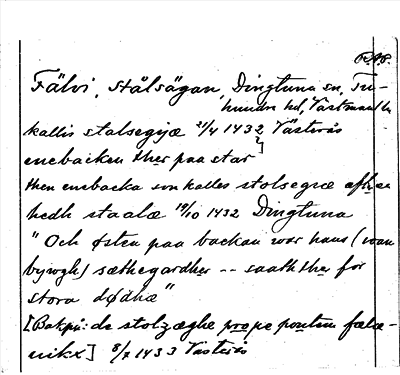 R.98.
Fälvi, Stålsägan, Dingtuna sn, Tu-
hundra hd, Västmanl. l.
kallis stalsegiæ 2/4 1432 Västerås
enebacken ther paa star
then enebacka som kalles stolsegræ
hedh staalæ 19/10 1432 Dingtuna
" Och Østen paa backan war hans (wan
bywgh) sæthegardher -- saath ther før
stora dødhæ "
[Bakpå: de stolzæghe prope pontem fælæ-
uikx] 8/7 1433 Västerås